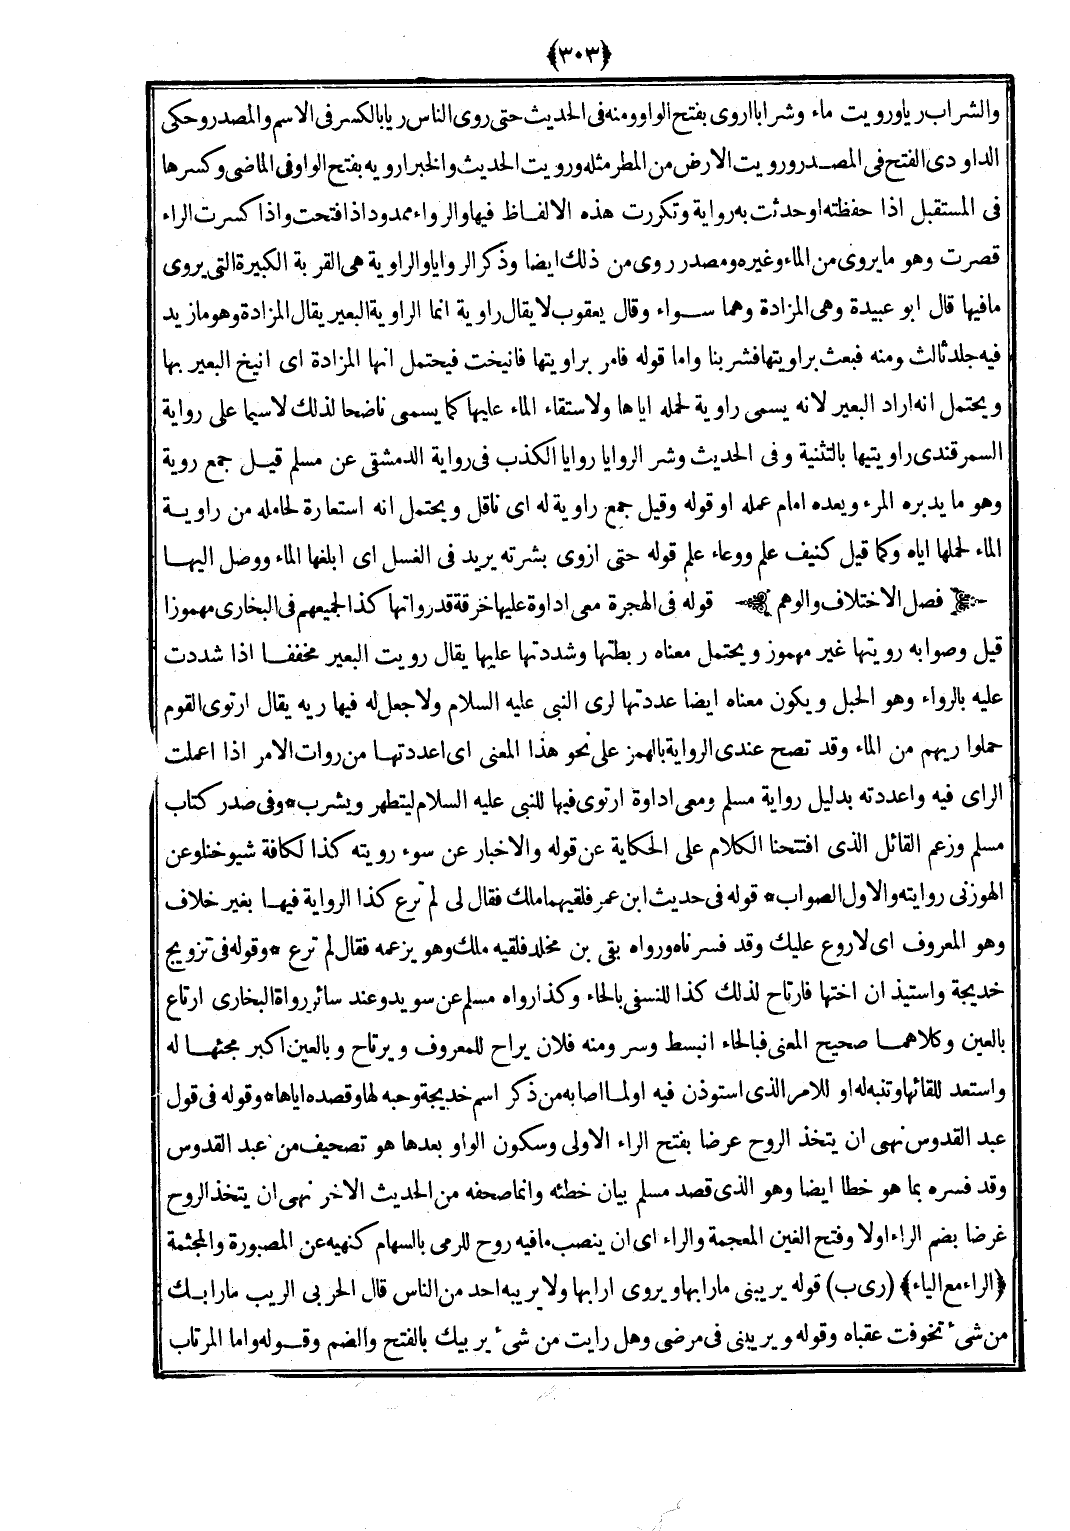 ﴿٣٠٣﴾
والشراب ريا ورويت ماء وشرابا اروى بفتح الواو ومنه فى الحديث حتى روى الناس ريا بالكسر فى الاسم والمصدر وحكى
الداودى الفتح فى المصدر ورويت الارض من المطر مثله ورويت الحديث والخبر ارويه بفتح الواو فى الماضى وكسرها
فى المستقبل اذا حفظته او حدثت به رواية وتكررت هذه الالفاظ فيها والرواء ممدود اذا فتحت واذا كسرت الراء
قصرت وهو ما يروى من الماء وغيره ومصدر روى من ذلك ايضا وذكر الروايا والراوية هى القربة الكبيرة التى يروى
مافيها قال ابو عبيدة وهى المزادة وهما سواء وقال يعقوب لا يقال راوية انما الراوية البعير يقال المزادة وهو مازيد
فيه جلد ثالث ومنه فبعث براويتها فشربنا واما قوله فامر براويتها فانيخت فيحتمل انها المزادة اى انيخ البعير بها
ويحتمل انه اراد البعير لانه يسمى راوية لحمله اياها ولاستقاء الماء عليها كما يسمى ناضحا لذلك لاسيما على رواية
السمرقندى راويتيها بالتثنية وفى الحديث وشر الروايا روايا الكذب فى رواية الدمشقى عن مسلم قيل جمع روية
وهو ما يدبره المرء ويعده امام عمله او قوله وقيل جمع راوية له اى ناقل ويحتمل انه استعارة لحامله من راوية
الماء لحملها اياه وكما قيل كنيف علم ووعاء علم قوله حتى ازوى بشرته يريد فى الغسل اى ابلغها الماء ووصل اليها
﴿ فصل الاختلاف والوهم ﴾ قوله فى الهجرة معى اداوة عليها خرقة قد رواتها كذا لجميعهم فى البخارى مهموزا
قيل وصوابه رويتها غير مهموز ويحتمل معناه ربطتها وشددتها عليها يقال رويت البعير مخففا اذا شددت
عليه بالرواء وهو الحبل ويكون معناه ايضا عددتها لرى النبى عليه السلام ولاجعل له فيها ريه يقال ارتوى القوم
حملوا ريهم من الماء وقد تصح عندى الرواية بالهمز على نحو هذا المعنى اى اعددتها من روات الامر اذا اعملت
الراى فيه واعددته بدليل رواية مسلم ومعى اداوة ارتوى فيها للنبى عليه السلام ليتطهر ويشرب * وفى صدر كتاب
مسلم وزعم القائل الذى افتتحنا الكلام على الحكاية عن قوله والاخبار عن سوء رويته كذا لكافة شيوخنا وعن
الهوزنى روايته والاول الصواب * قوله فى حديث ابن عمر فلقيهما ملك فقال لى لم ترع كذا الرواية فيها بغير خلاف
وهو المعروف اى لاروع عليك وقد فسرناه ورواه بقى بن مخلد فلقيه ملك وهو يزعمه فقال لم ترع * وقوله فى تزويج
خديجة واستيذان اختها فارتاح لذلك كذا للنسفى بالحاء وكذا رواه مسلم عن سويد وعند سائر رواة البخارى ارتاع
بالعين وكلاهما صحيح المعنى فبالحاء انبسط وسر ومنه فلان يراح للمعروف ويرتاح وبالعين اكبر مجئها له
واستعد للقائها وتنبه له او للامر الذى استوذن فيه اولما اصابه من ذكر اسم خديجة وحبه لها وقصده اياها * وقوله فى قول
عبد القدوس نهى ان يتخذ الروح عرضا بفتح الراء الاولى وسكون الواو بعدها هو تصحيف من عبد القدوس
وقد فسره بما هو خطا ايضا وهو الذى قصد مسلم بيان خطئه وانما صحفه من الحديث الاخر نهى ان يتخذ الروح
غرضا بضم الراء اولا وفتح الغين المعجمة والراء اى ان ينصب مافيه روح للرمى بالسهام كنهيه عن المصبورة والمجثمة
﴿الراء مع الياء﴾ (رى ب) قوله يريبنى مارابها ويروى ارابها ولا يريبه احد من الناس قال الحربى الريب مارابك
من شئ تخوفت عقباه وقوله ويريبنى فى مرضى وهل رايت من شئ يريبك بالفتح والضم وقوله واما المرتاب